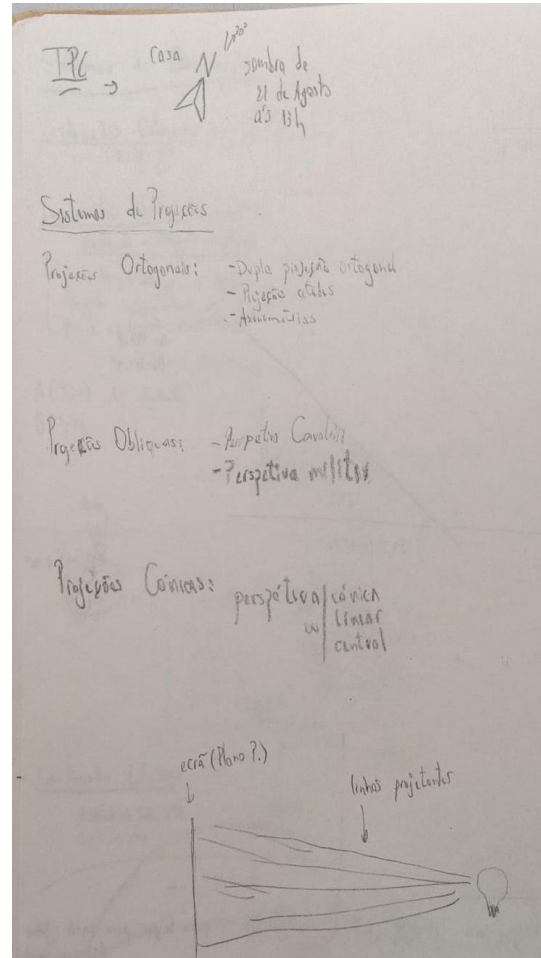 TPC → Casa N
sombra de
21 de Agosto
às 13h
Sistemas de Projeções
Projeções Ortogonais: - Dupla projeção ortogonal
- Projeção cotadas
- Axonometrias
Projeções Obliquas: - Perspetiva Cavaleira
- Perspetiva militar
Projeções Cónicas: perspétiva cónica
ou linear
central
ecrã (Plano P.)
linhas projetantes